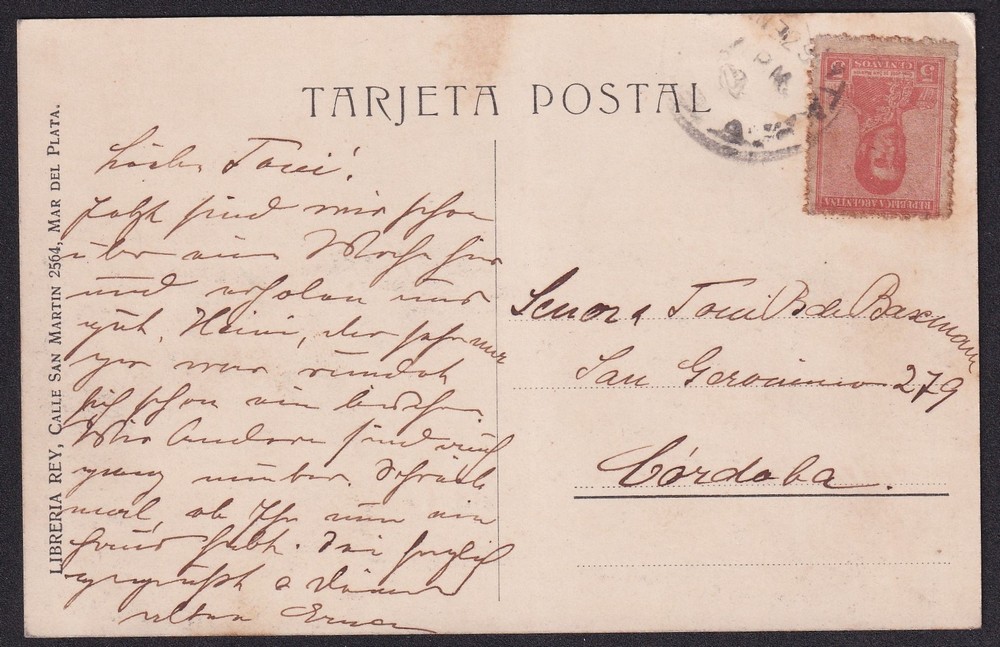 TARJETA POSTAL
LIBRERIA REY, CALLE SAN MARTIN 2564, MAR DEL PLATA.
Toni!
Jetzt sind wir schon
über eine Woche hier
und erholen uns
gut. Heini, der sehr
war, rundet
sich schon ein bischen.
Wir Andern sind auch
ganz munter. Schreib
mal, ob Ihr nun ein
Haus habt. Sei herzlich
gegrüsst v. Deiner
alten Erna
Senora Toni B de Baxmann
San Geronimo 279
Córdoba.
REPUBLICA ARGENTINA
5 CENTAVOS 5